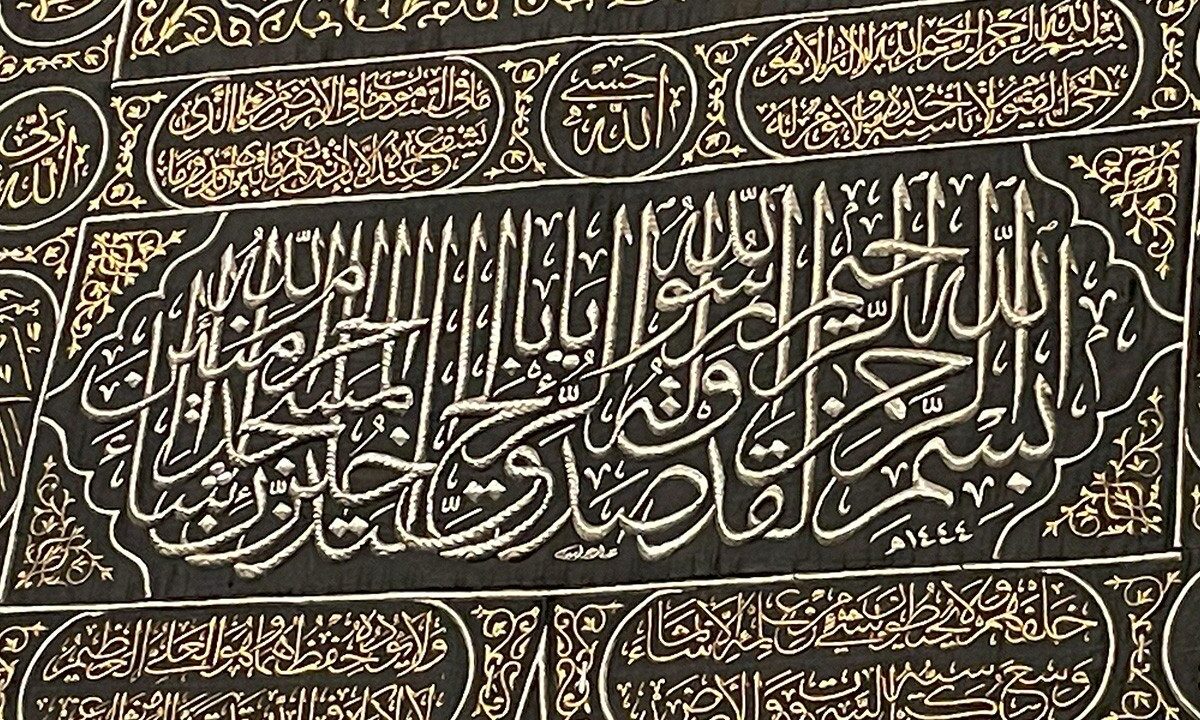 بسم الله الرحمن الرحيم الله لا إله إلا هو
الحي القيوم لا تأخذه سنة ولا نوم له
حسبي
الله
ما في السموت وما في الأرض من ذا الذي
يشفع عنده إلا بإذنه يعلم ما بين أيديهم وما
ربي
الله
بسم الله الرحمن الرحيم
لقد صدق الله رسوله الرءيا بالحق لتدخلن المسجد الحرام إن شاء الله ءامنين
١٤٤٤هـ
خلفهم ولا يحيطون بشيء من علمه إلا بما شاء
وسع كرسيه السموت والأرض
ولا يؤده حفظهما وهو العلي العظيم